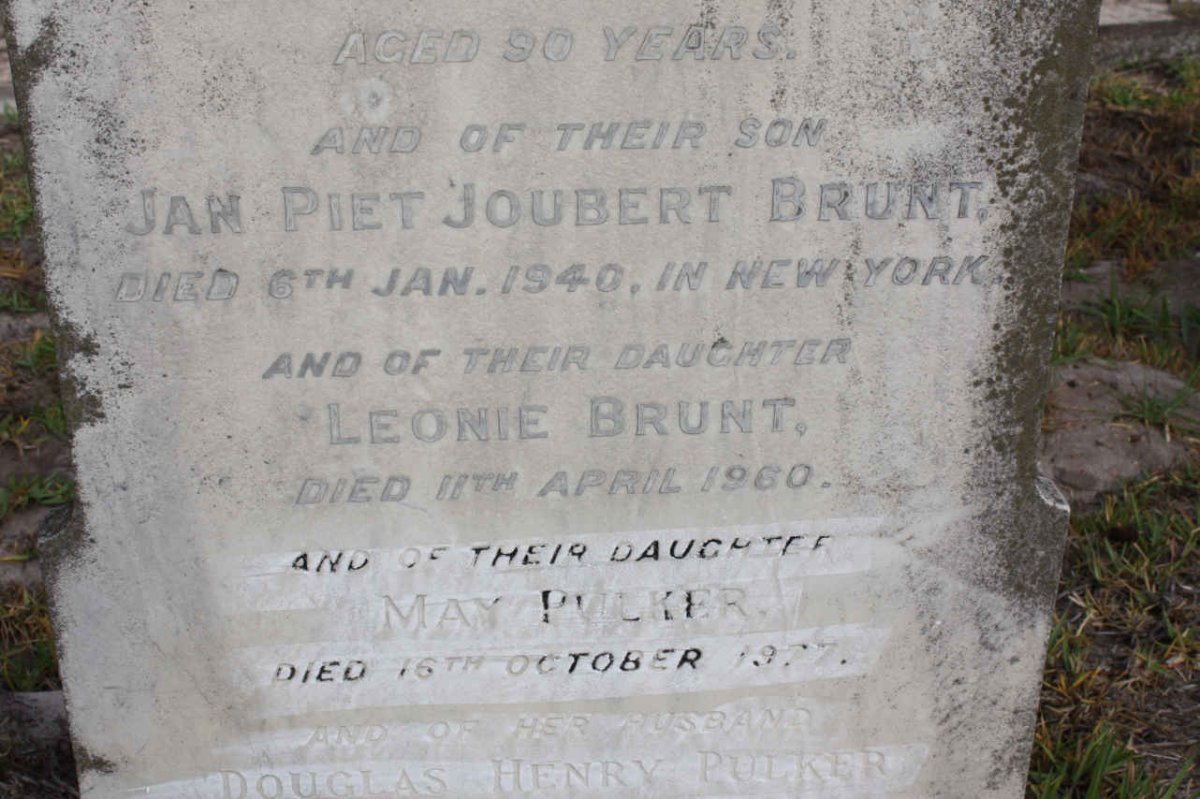 AGED 90 YEARS.
AND OF THEIR SON
JAN PIET JOUBERT BRUNT,
DIED 6TH JAN. 1940, IN NEW YORK.
AND OF THEIR DAUGHTER
LEONIE BRUNT,
DIED 11TH APRIL 1960.
AND OF THEIR DAUGHTER
MAY PULKER.
DIED 16TH OCTOBER 1977.
AND OF HER HUSBAND
DOUGLAS HENRY PULKER